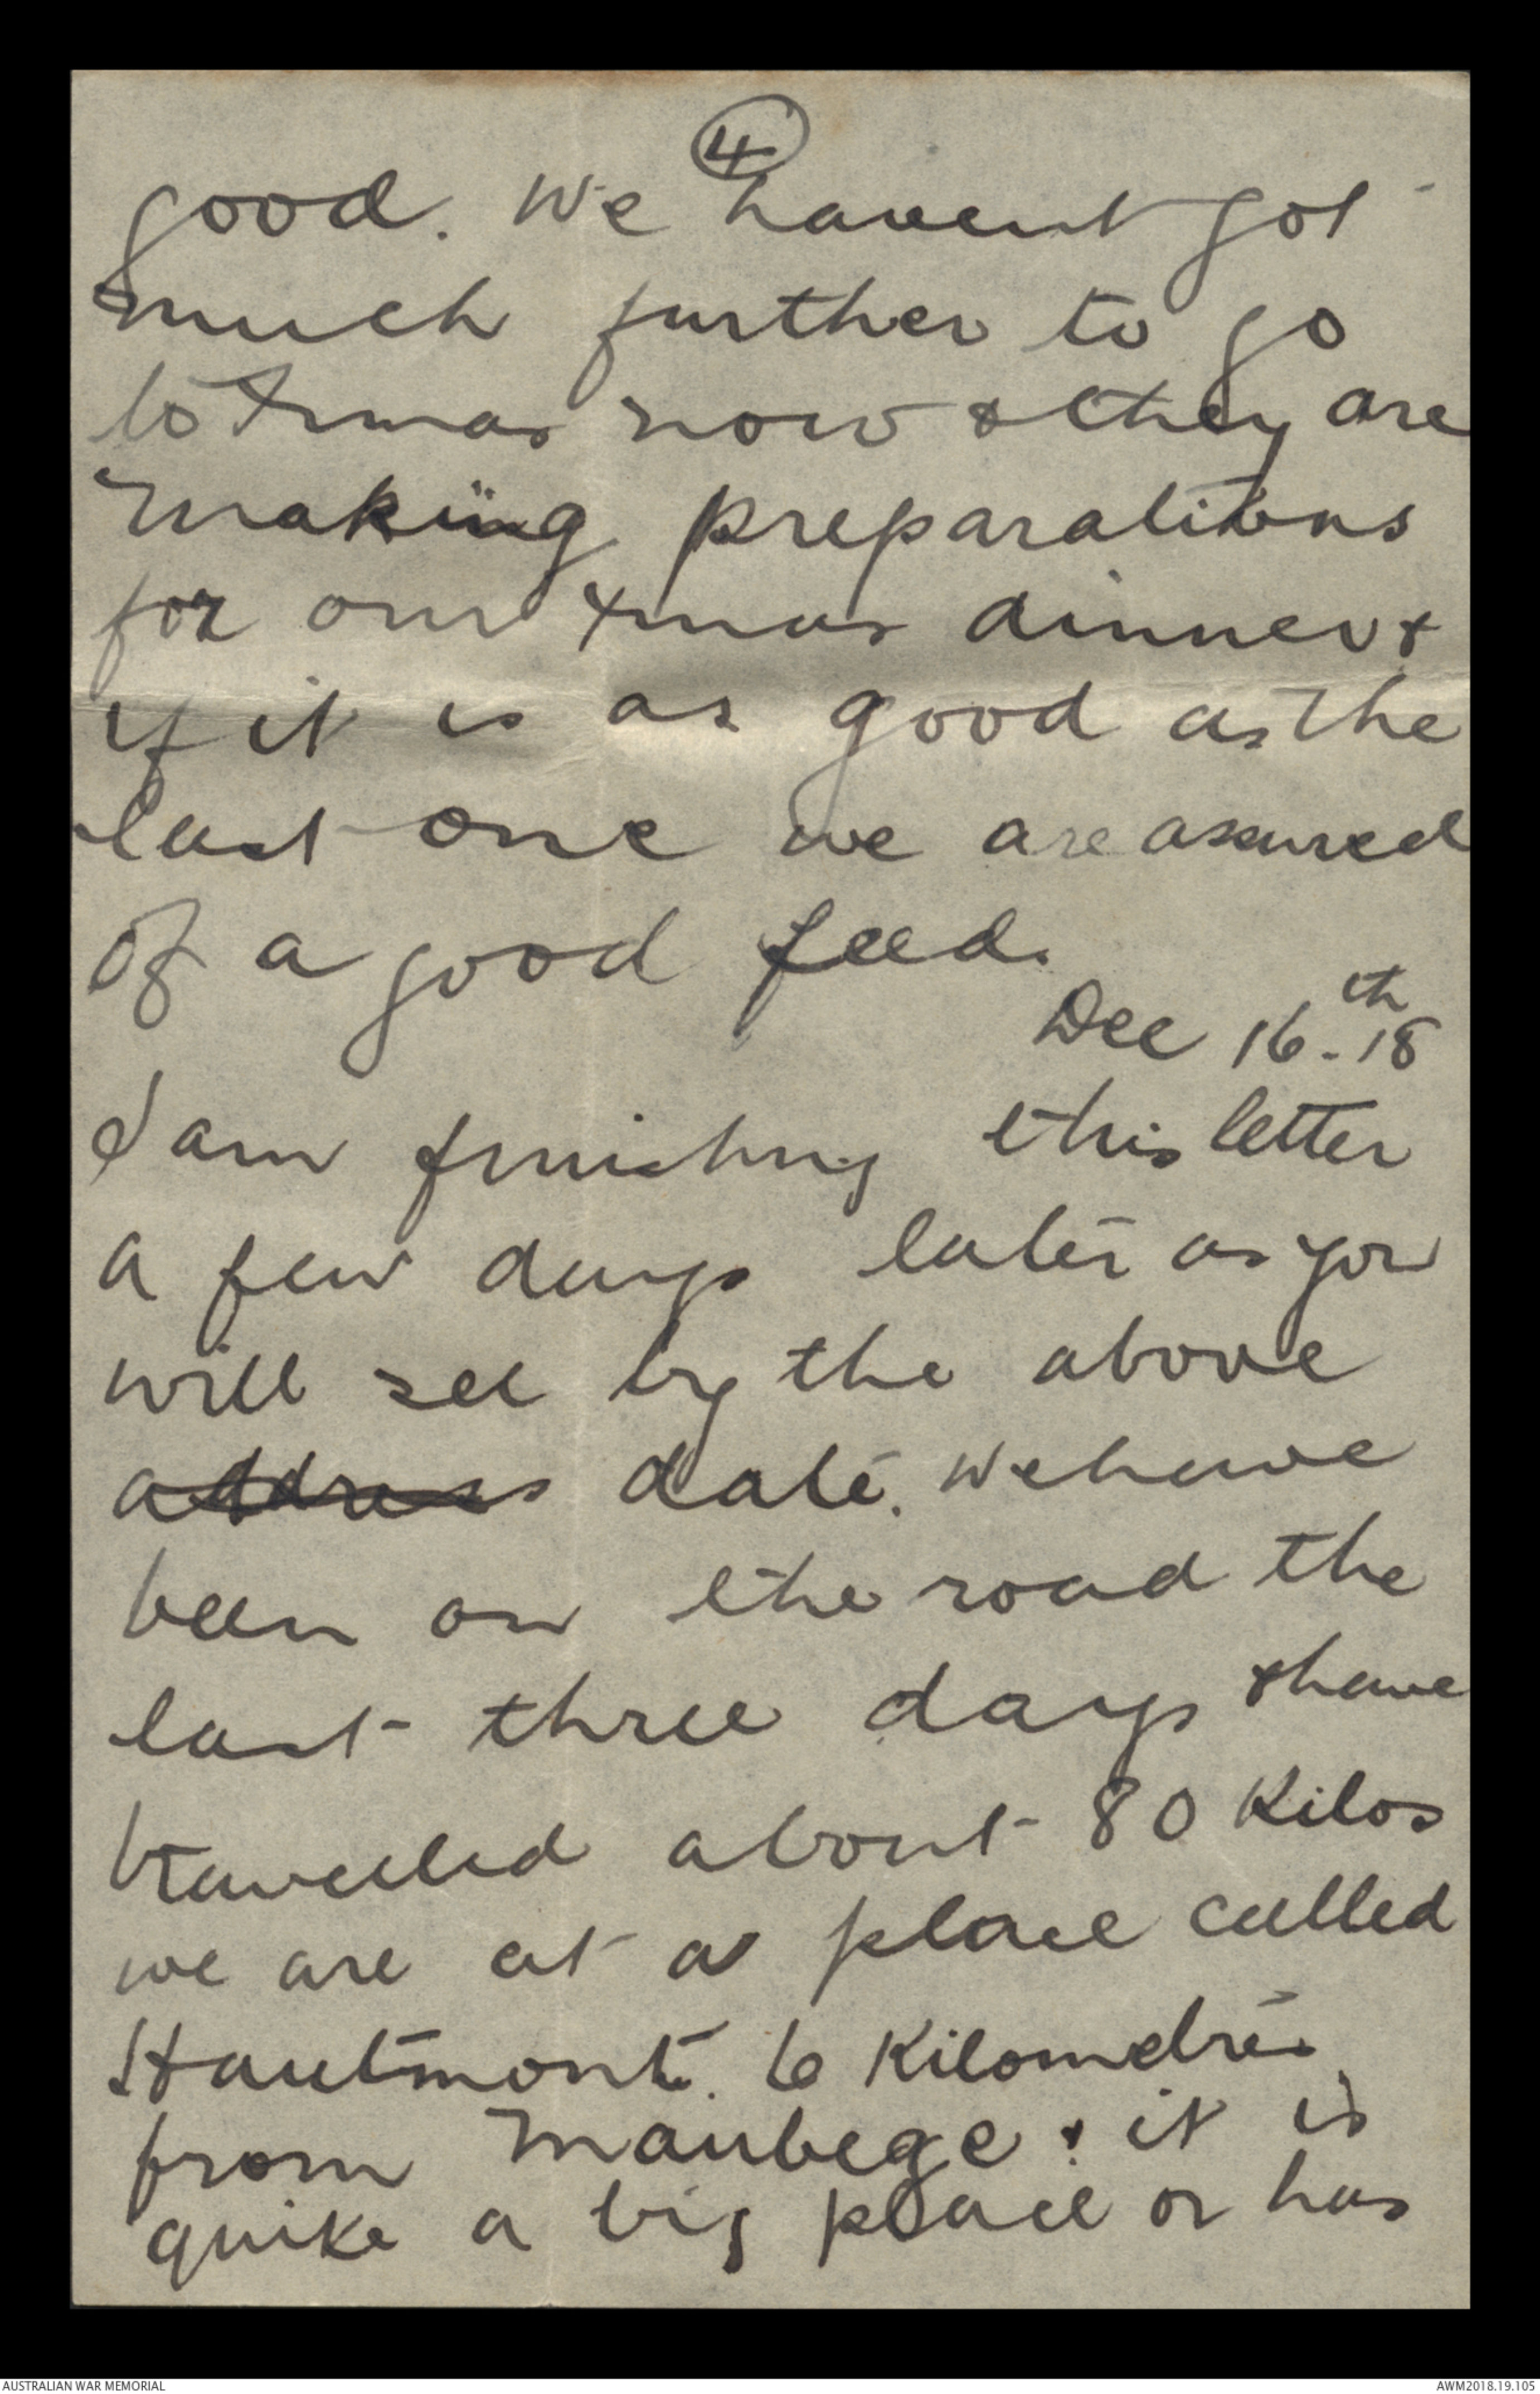 4
good. We havent got
much further to go
to Xmas now & they are
making preparations
for our Xmas dinner &
if it is as good as the
last one we are assured
of a good feed.
Dec 16th - 18
I am finishing this letter
a few days later as you
will see by the above
address date. We have
been on the road the
last three days & have
travelled about 80 Kilos
we are at a place called
Hautmont. 6 Kilometres
from Maubege & it is
quike a big place or has
AUSTRALIAN WAR MEMORIAL
AWM2018.19.105